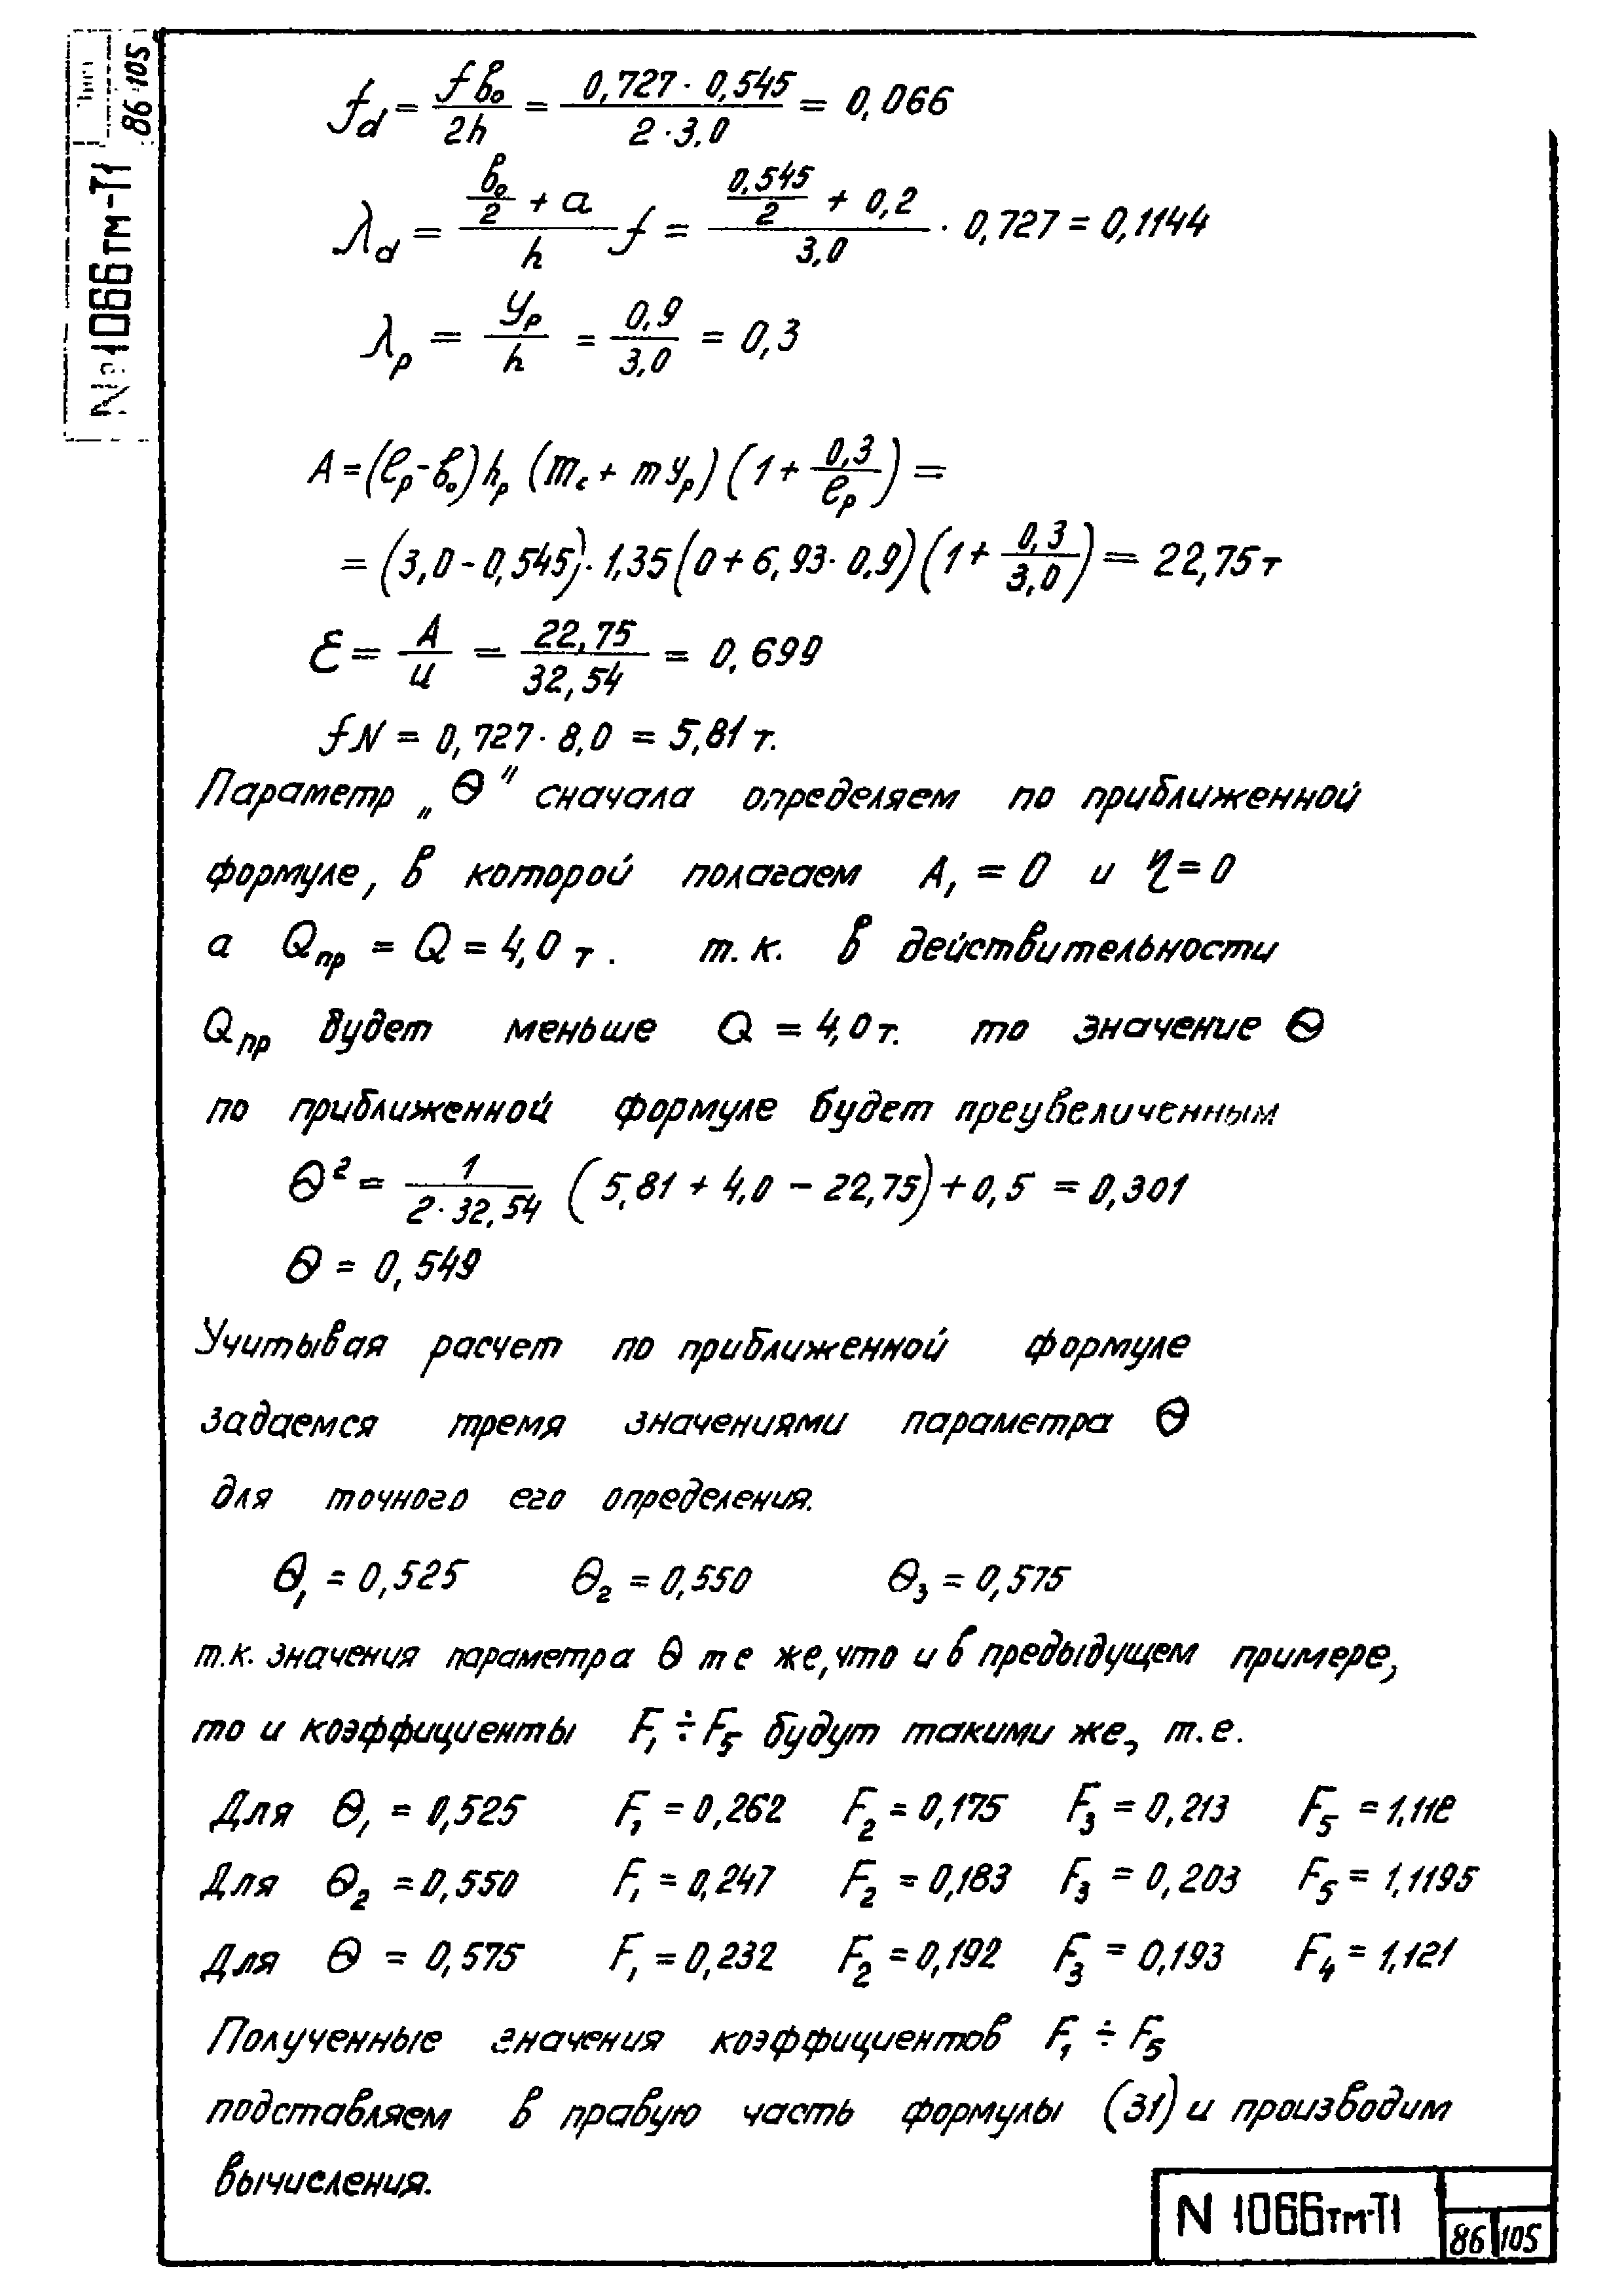 86 105
№ 1066тм-Т1
f_d = f b₀ / 2h = 0,727 · 0,545 / 2 · 3,0 = 0,066
λ_d = (b₀/2 + a) / h f = (0,545/2 + 0,2) / 3,0 · 0,727 = 0,1144
λ_р = У_р / h = 0,9 / 3,0 = 0,3
A = (ℓ_р - b₀) h_р (m_c + m У_р) (1 + 0,3/ℓ_р) =
= (3,0 - 0,545) · 1,35 (0 + 6,93 · 0,9) (1 + 0,3/3,0) = 22,75 т
Ɛ = A / u = 22,75 / 32,54 = 0,699
fN = 0,727 · 8,0 = 5,81 т.
Параметр „Θ" сначала определяем по приближенной
формуле, в которой полагаем A₁ = 0 и η = 0
а Q_пр = Q = 4,0 т. т.к. в действительности
Q_пр будет меньше Q = 4,0 т. то значение Θ
по приближенной формуле будет преувеличенным
Θ² = 1 / 2 · 32,54 (5,81 + 4,0 - 22,75) + 0,5 = 0,301
Θ = 0,549
Учитывая расчет по приближенной формуле
задаемся тремя значениями параметра Θ
для точного его определения.
Θ₁ = 0,525 Θ₂ = 0,550 Θ₃ = 0,575
т.к. значения параметра Θ те же, что и в предыдущем примере,
то и коэффициенты F₁ ÷ F₅ будут такими же, т.е.
Для Θ₁ = 0,525 F₁ = 0,262 F₂ = 0,175 F₃ = 0,213 F₅ = 1,118
Для Θ₂ = 0,550 F₁ = 0,247 F₂ = 0,183 F₃ = 0,203 F₅ = 1,1195
Для Θ = 0,575 F₁ = 0,232 F₂ = 0,192 F₃ = 0,193 F₄ = 1,121
Полученные значения коэффициентов F₁ ÷ F₅
подставляем в правую часть формулы (31) и производим
вычисления.
N 1066тм-Т1
86 105